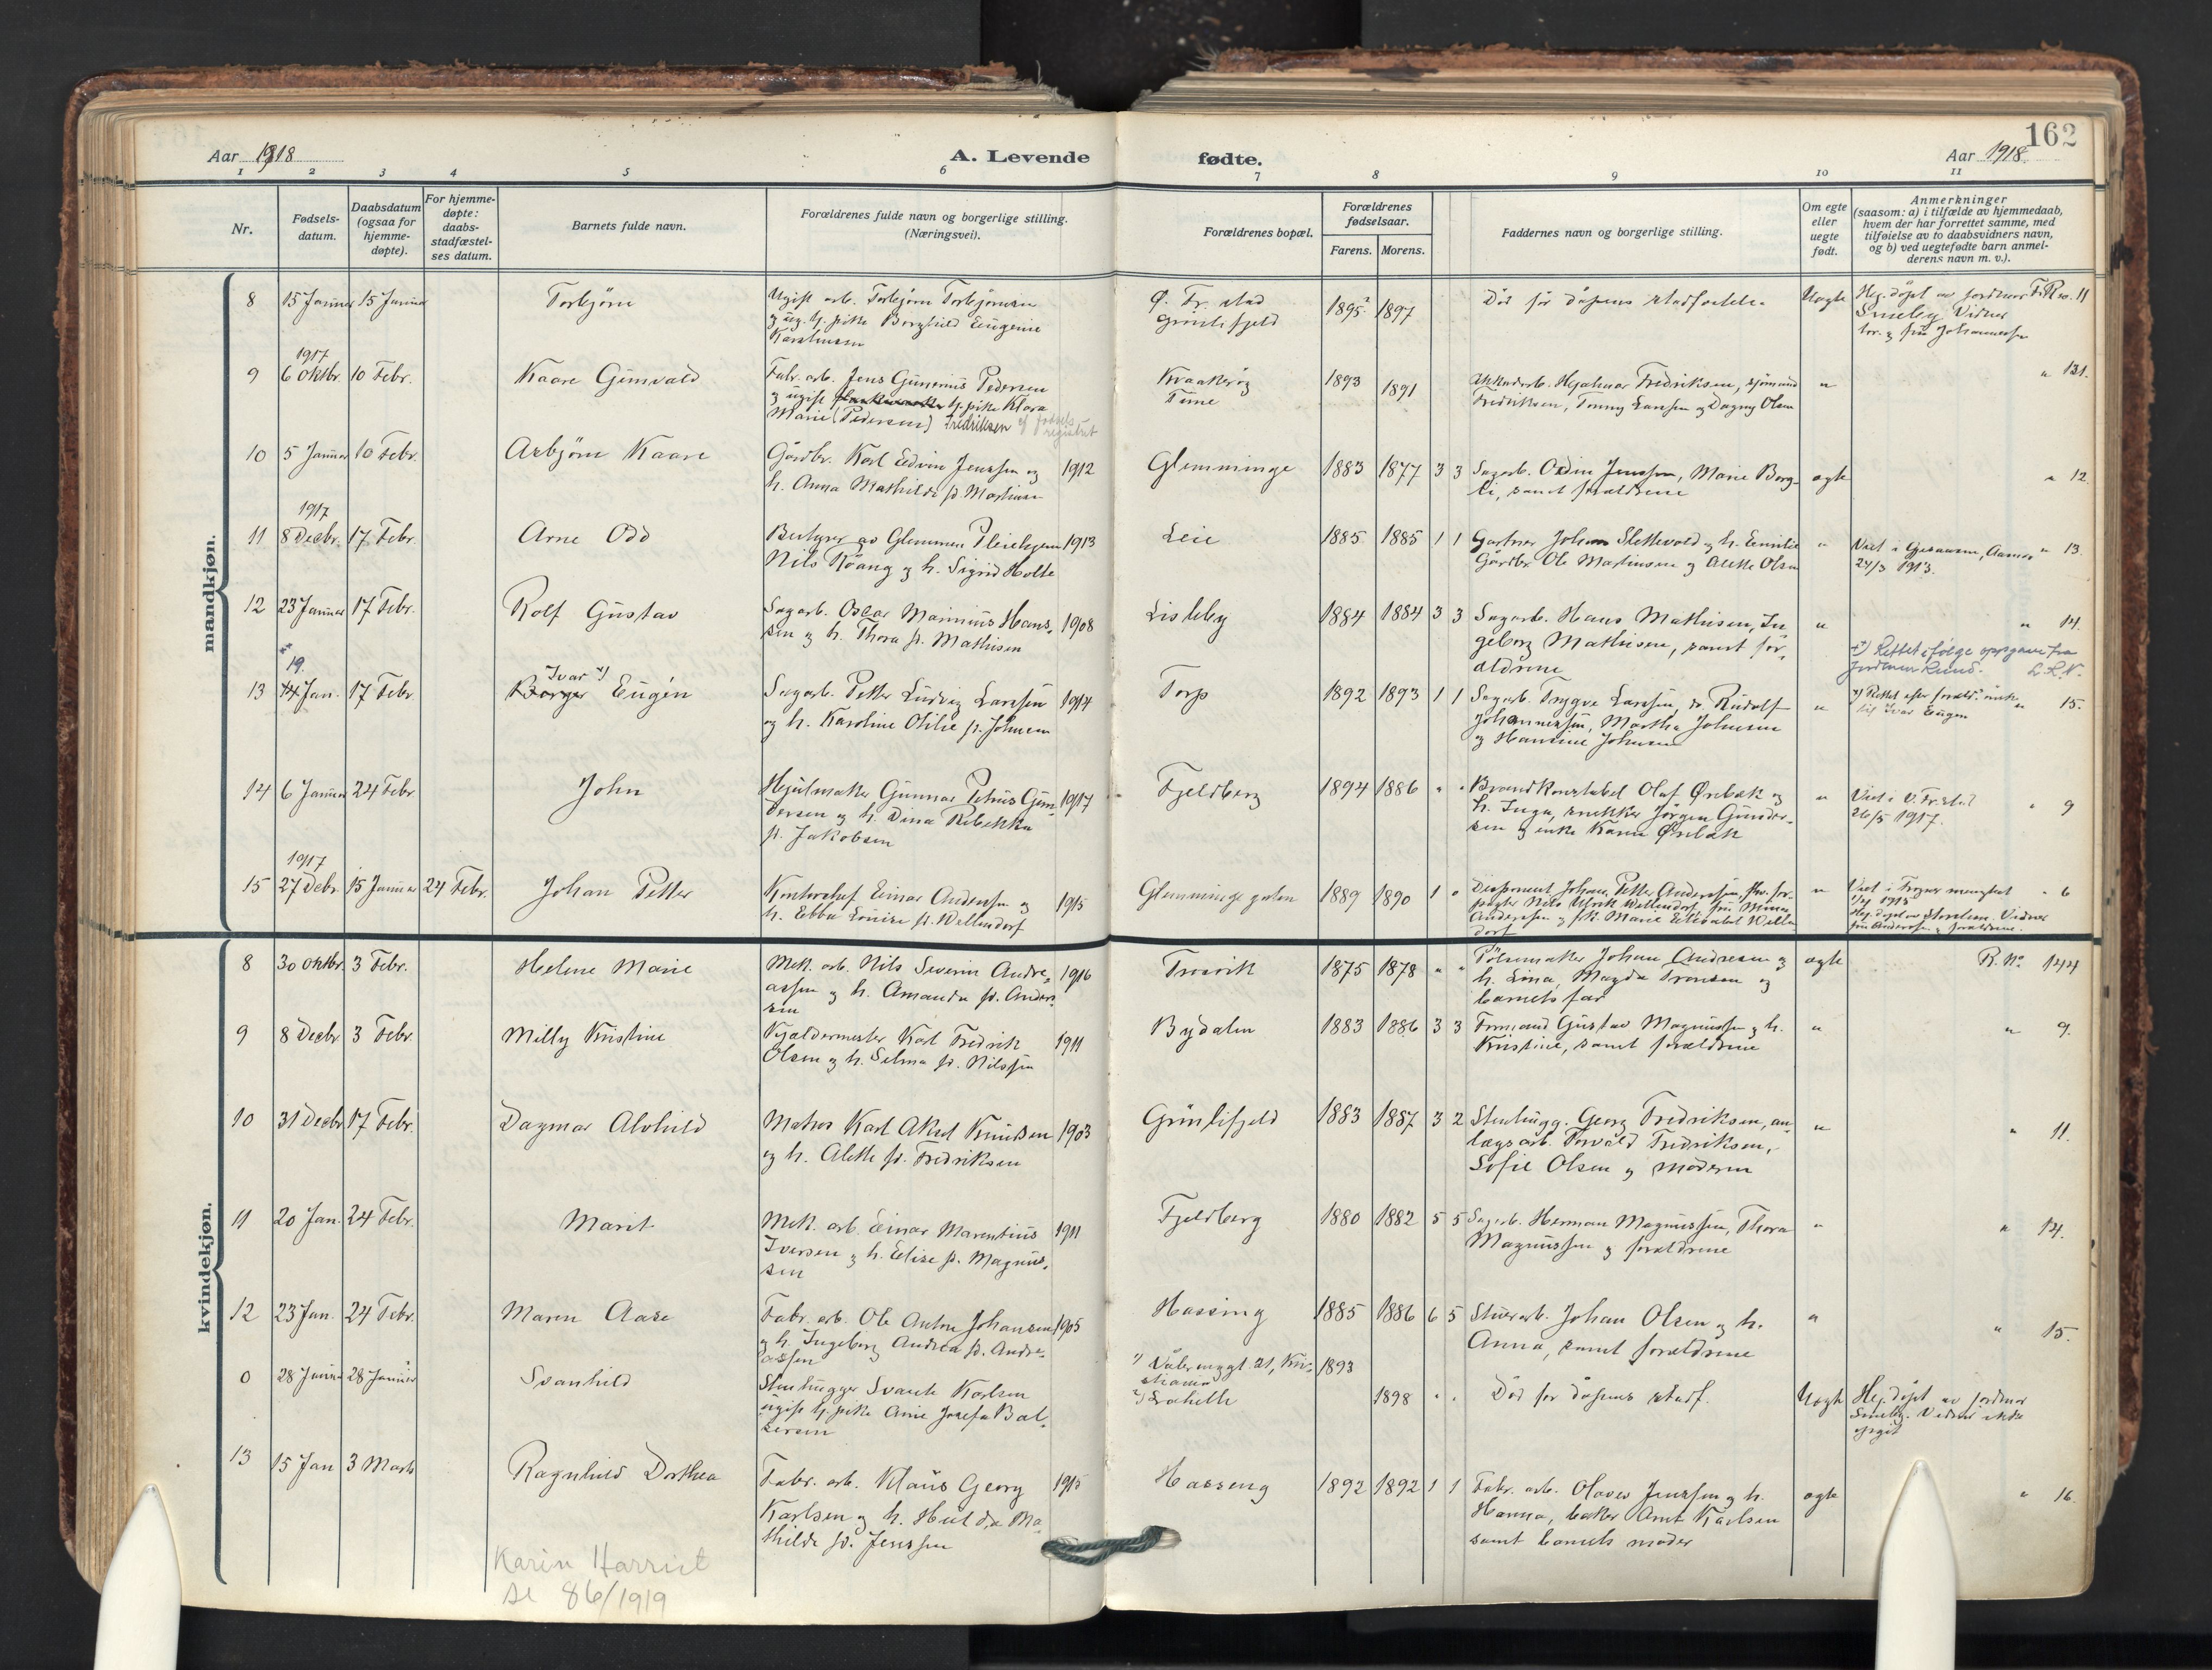 162
Aar 1918
A. Levende
fødte.
Aar 1918
1 2 3 4 5 6 7 8 9 10 11
Nr.
Fødsels-
datum.
Daabsdatum
(ogsaa for
hjemme-
døpte).
For hjemme-
døpte:
daabs-
stadfæstel-
ses datum.
Barnets fulde navn.
Forældrenes fulde navn og borgerlige stilling.
(Næringsvei).
Forældrenes bopæl.
Forældrenes
fødselsaar.
Farens. Morens.
Faddernes navn og borgerlige stilling.
Om egte
eller
uegte
født.
Anmerkninger
(saasom: a) i tilfælde av hjemmedaab,
hvem der har forrettet samme, med
tilføielse av to daabsvidners navn,
og b) ved uegtefødte barn anmel-
derens navn m. v.).
mandkjøn.
8 15 Januar 15 Januar
Torbjørn
Ugift arb. Torbjørn Torbjørnsen
og ug. tj. pike Borghild Eugenie
Karstensen
Ø. Fr.stad
Grönlifjeld
1895 1897
Död för dåpens stadfæstelse
Uegte
Hj. döpt av jordmor
Smeby. Vidner
F.R no. 11
1917
9 6 oktbr. 10 Febr.
Kaare Gunvald
Fabr. arb. Jens Gunerius Pedersen
og ugift tj. pike Klara
Marie (Pedersen) Fredriksen ef fødsels-
registret
Kraakerøy
Tune
1893 1891
Hjalmar Fredriksen, sjömand
Fredriksen, Tommy Larssen og Dagny Olsen
" 131.
10 5 Januar 10 Febr.
Asbjørn Kaare
Gårdbr. Karl Edvin Jenssen og
h. Anna Mathilde f. Martinsen
1912
Glemminge
1883 1877 3 3
Sagarb. Odin Jenssen, Marie Borg-
li, samt forældrene
egte
" 12.
1917
11 8 Decbr. 17 Febr.
Arne Odd
Bestyrer av Glemmen Pleiehjem
Nils Röang og h. Sigrid Holte
1913
Leie
1885 1885 1 1
Gartner Johan Slettevold og h. Emilie
Gårdbr. Ole Martinsen og Alette Olsen
"
24/3 1913.
" 13.
12 23 Januar 17 Febr.
Rolf Gustav
Sagarb. Oscar Marinius Hans-
sen og h. Thora f. Mathisen
1908
Lisleby
1884 1884 3 3
Sagarb. Hans Mathisen, In-
geborg Mathisen, samt for-
ældrene
"
" 14.
+) Rettet ifølge oppgave fra
L.R.N.
19.
13 14 Jan. 17 Febr.
Ivar
Borger Eugén
Sagarb. Petter Ludvig Larssen
og h. Karoline Otilie f. Johnsen
1914
Torp
1892 1893 1 1
Sagarb. Trygve Larssen, do. Rudolf
Johannessen, Martha Johnsen
og Hansine Johnsen
"
Rettet efter foræld. önske
til Ivar Eugen
15.
14 6 Januar 24 Febr.
John
Hjulmaker Gunnar Petrus Gun-
dersen og h. Dina Rebekka
f. Jakobsen
1917
Fjeldberg
1894 1886 " "
Brandkonstabel Olaf Ørebæk og
h. Inga, snekker Jörgen Gunder-
sen og enke Karen Ørebæk
"
Viet i V. Fr.stad
26/5 1917.
" 9
1917
15 27 Debr. 15 Januar 24 Febr.
Johan Petter
Kontorchef Einar Anderssen og
h. Ebba Louise f. Wellendorf
1915
Glemminge gaten
1889 1890 1 0
Disponent Johan Petter Anderssen, for-
pagter Nils Ulrik Wellendorf, fru Minna
Anderssen og frk. Marie Elisabet Wellen-
dorf
"
Viet i Frogner menighet
1915
" 6
kvindekjøn.
8 30 oktbr. 3 Febr.
Helene Marie
Mek. arb. Nils Severin Andre-
assen og h. Amanda f. Ander-
sen
1916
Trosvik
1875 1878 " "
Pölsemaker Johan Andresen og
h. Lina, Magda Tronsen og
barnets far
egte
R. No. 144
9 8 Decbr. 3 Febr.
Milly Kristine
Kjældermester Karl Fredrik
Olsen og h. Selma f. Nilssen
1911
Bydalen
1883 1886 3 3
Formand Gustav Magnussen og h.
Kristine, samt forældrene
"
" 9.
10 31 Decbr 17 Febr.
Dagmar Alvhild
Matros Karl Aksel Knudsen
og h. Alette f. Fredriksen
1903
Grönlifjeld
1883 1887 3 2
Stenhugg. Georg Fredriksen, an-
lægsarb. Torvald Fredriksen,
Sofie Olsen og moderen
"
" 11.
11 20 Jan. 24 Febr.
Marit
Mek. arb. Einar Marentius
Iversen og h. Elise f. Magnus-
sen
1911
Fjeldberg
1880 1882 5 5
Sagarb. Herman Magnussen, Thora
Magnussen og forældrene
"
" 14.
12 23 Jan. 24 Febr.
Maren Aase
Fabr. arb. Ole Anton Johansen
og h. Ingeborg Andrea f. Andre-
assen
1905
Hassing
1885 1886 6 5
Stuerarb. Johan Olsen og h.
Anna, samt forældrene
"
" 15.
0 28 Januar 28 Januar
Svanhild
Stenhugger Svante Karlsen
ugift tj. pike Anie Josefa Bal-
sersen
1) Vålerenggt. 21, Kri-
stiania
1893
1898 " "
Död för dåpens stadf.
Uegte
Hj. döpt av jordmor
Smeby. Vidner ikke
opgit
13 15 Jan 3 Marts
Ragnhild Dorthea
Fabr. arb. Klaus Georg
Karlsen og h. Hulda Ma-
thilde f. Jenssen
1915
Hasseng
1892 1892 1 1
Fabr. arb. Olaves Jenssen og h.
Hanna, baker Arnt Karlsen
samt barnets moder
egte
" 16.
Karin Harriet
se 86/1919